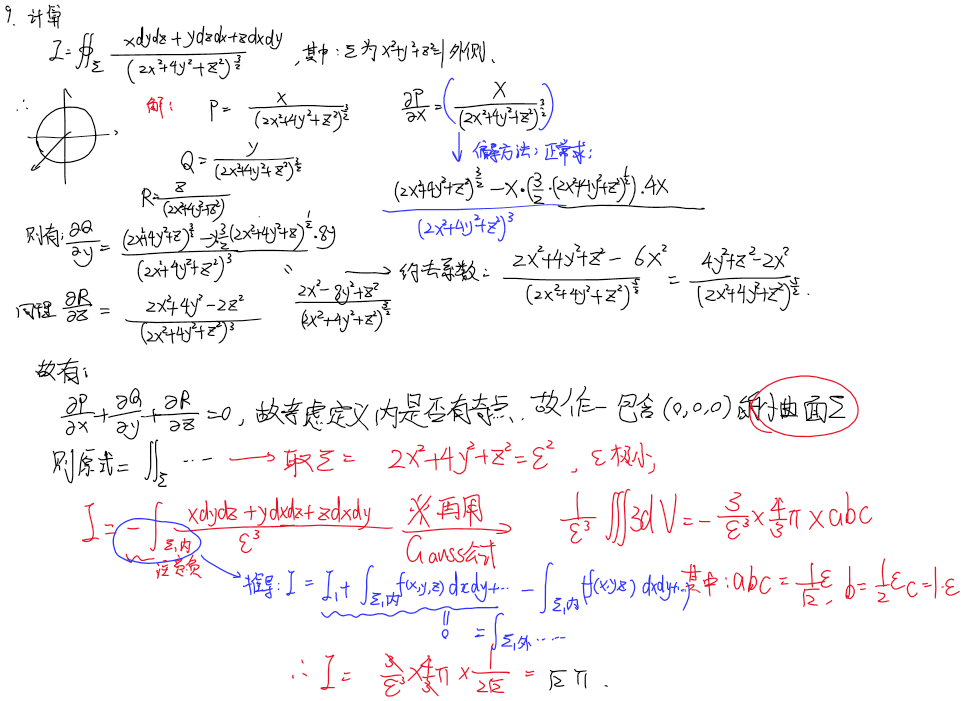 9. 计算
I = ∯_Σ (xdydz + ydzdx + zdxdy) / (2x²+4y²+z²)^(3/2) , 其中: Σ为 x²+y²+z²=1 外侧.
∴ 解: P = x / (2x²+4y²+z²)^(3/2)  ∂P/∂x = ( x / (2x²+4y²+z²)^(3/2) )
↓ 偏导方法: 正常求:
Q = y / (2x²+4y²+z²)^(3/2)
((2x²+4y²+z²)^(3/2) − x·(3/2·(2x²+4y²+z²)^(1/2))·4x) / (2x²+4y²+z²)³
R = z / (2x²+4y²+z²)
则有: ∂Q/∂y = ((2x²+4y²+z)^(3/2) − y·3/2(2x²+4y²+z)^(1/2)·8y) / (2x²+4y²+z²)³
→ 约去系数: (2x²+4y²+z² − 6x²) / (2x²+4y²+z²)^(5/2) = (4y²+z²−2x²) / (2x²+4y²+z²)^(5/2).
同理 ∂R/∂z = (2x²+4y²−2z²) / (2x²+4y²+z²)³  (2x²−8y²+z²) / (2x²+4y²+z²)^(5/2)
故有:
∂P/∂x + ∂Q/∂y + ∂R/∂z = 0, 故考虑定义内是否有奇点. 故作一包含 (0,0,0) 的 曲面Σ
则原式 = ∬_Σ ⋯ → 取Σ = 2x²+4y²+z²=ε², ε极小,
I = −∫_Σ₁内 (xdydz + ydxdz + zdxdy) / ε³ ※再用 Gauss公式 1/ε³ ∭3dV = −3/ε³ × 4/3 π × abc
注意负
推导: I = I₁ + ∫_Σ₁内 f(x,y,z) dxdy+⋯ − ∫_Σ₁内 f(x,y,z) dxdy+⋯ 其中: abc = 1/√2 ε, b = 1/2 ε c = 1·ε
‖
0 = ∫_Σ₁外 ⋯⋯
∴ I = 3/ε³ × 4/3 π × 1/(2√2) = √2 π.